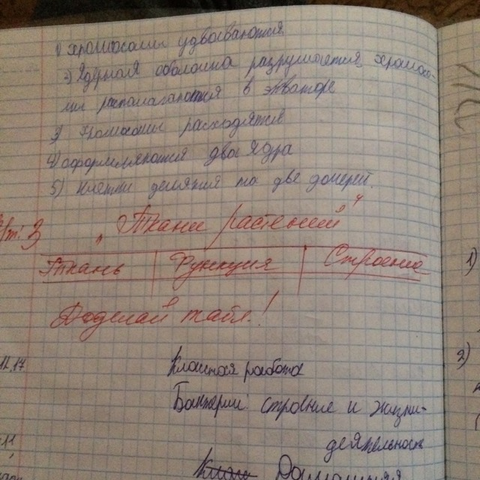 1) хромосомы удваиваются
2) Ядерная оболочка разрушается Хромосо-
мы располагаются в экваторе
3) Хромосомы расходятся
4) оформляются два ядра
5) Клетки делятся на две дочерн
"Ткани растений" 4
Ткань Функция Строение
Доделай табл!
11.17
Класная работа
Бактерии строние и жизни-
деятельност
Класн Домашняя
1)
2)